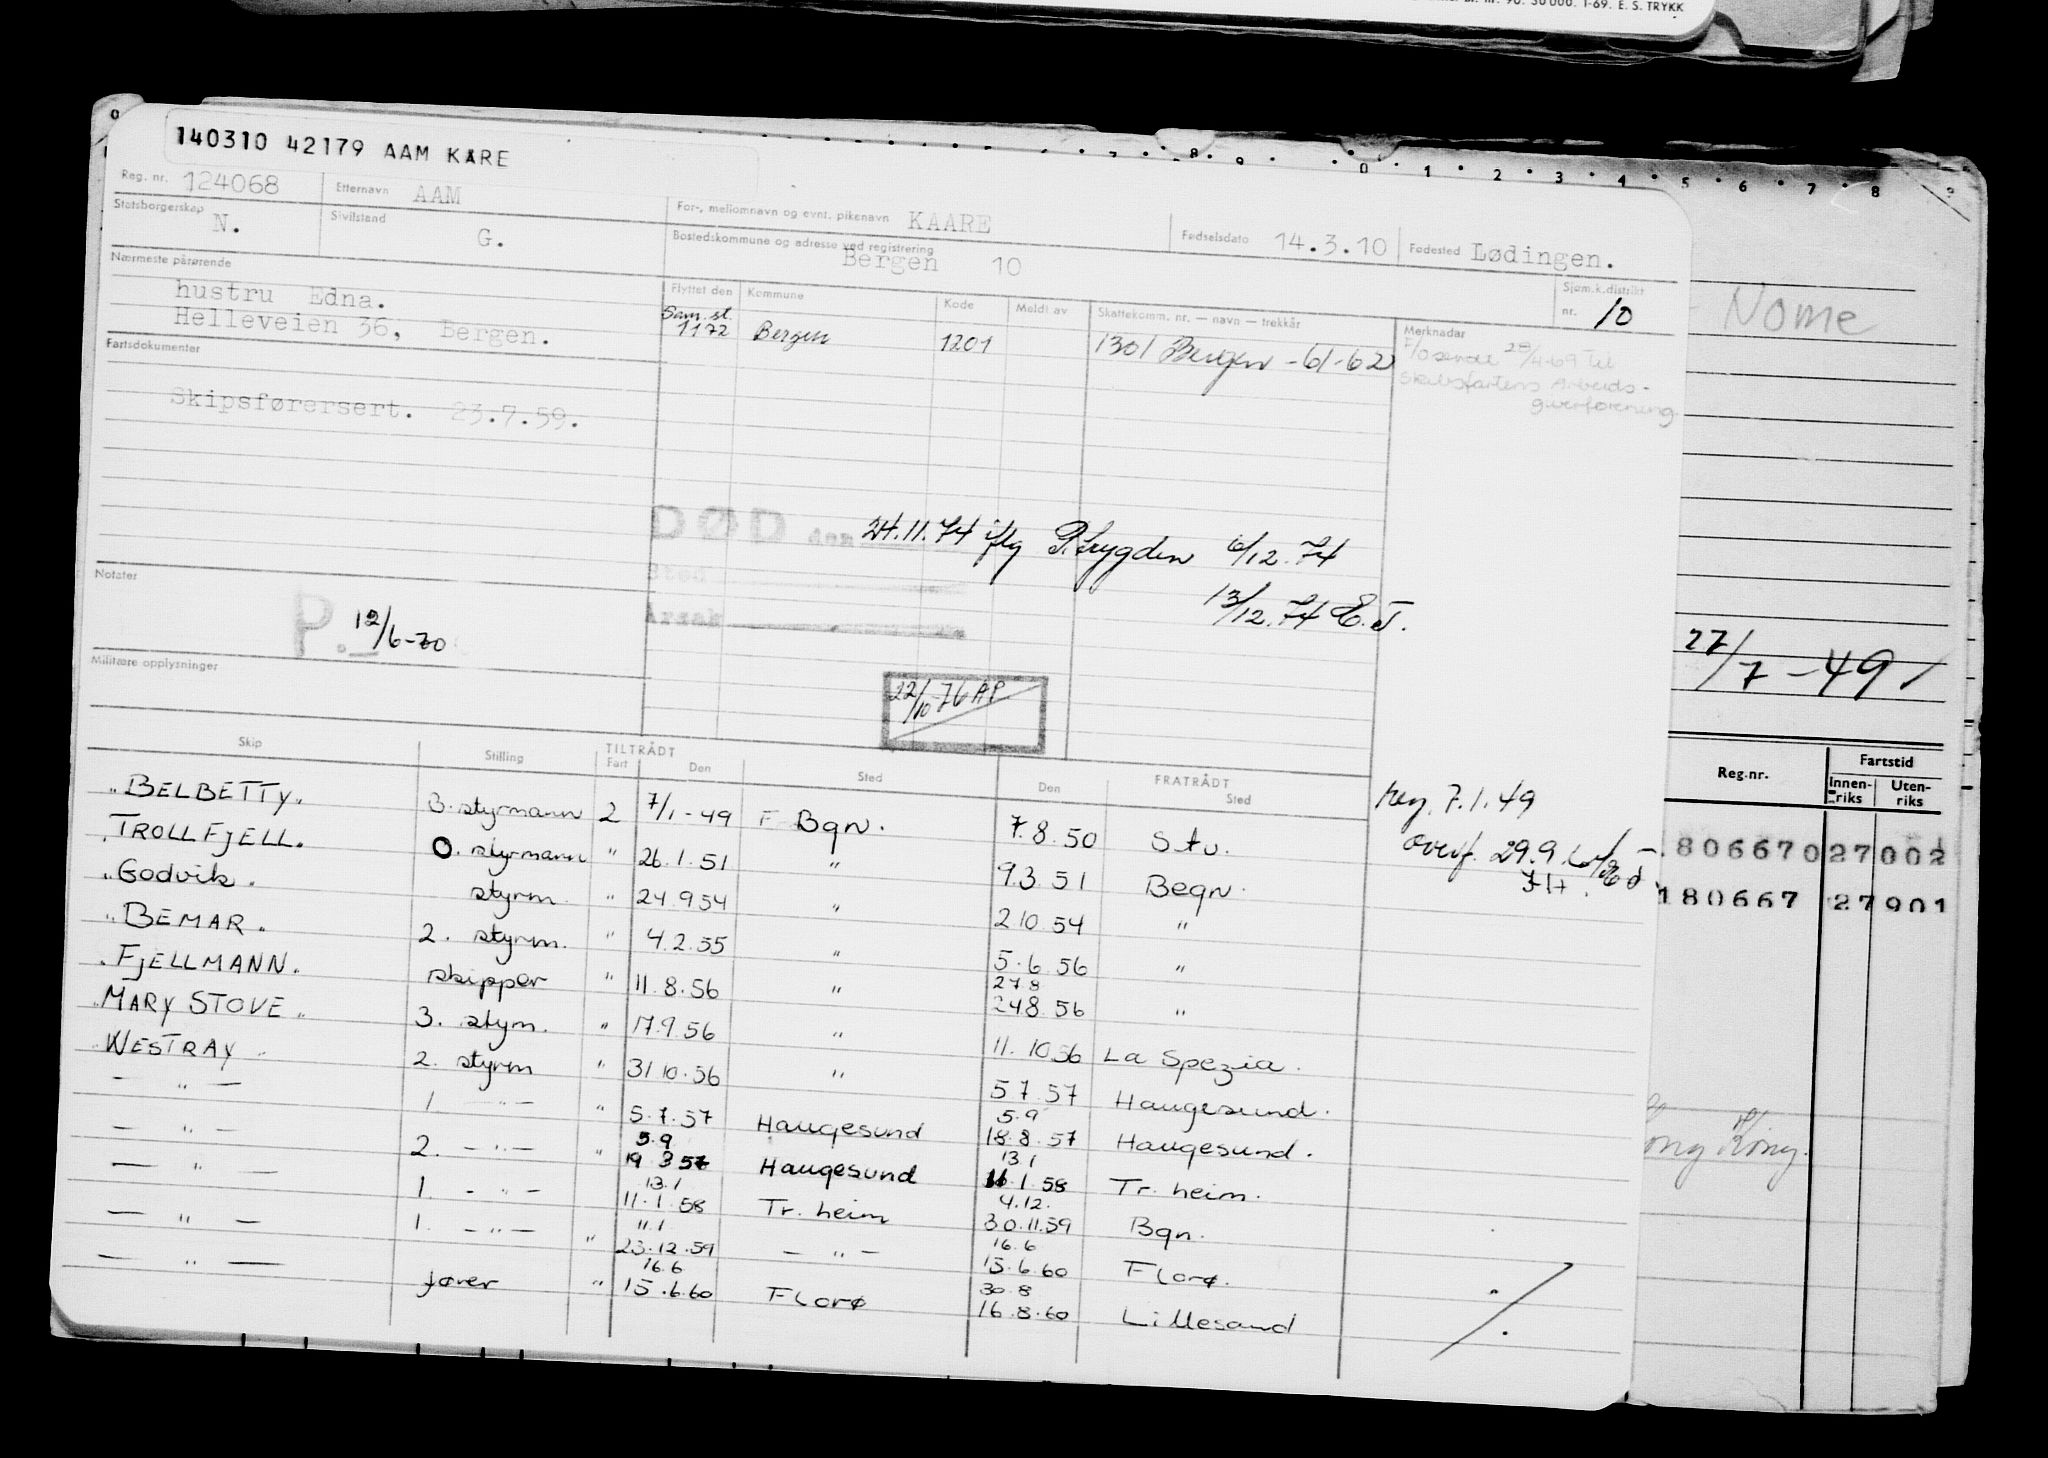 nr. 90. 30 000. 1-69. E. S. TRYKK
140310 42179 AAM KARE
Reg. nr. 124068 Etternavn AAM For-, mellomnavn og evnt. pikenavn KAARE Fødselsdato 14.3.10 Fødested Lødingen.
Statsborgerskap N. Sivilstand G. Bostedskommune og adresse ved registrering Bergen 10
Nærmeste pårørende hustru Edna.
Helleveien 36, Bergen.
Flyttet den Kommune Kode Meldt av Skattekomm. nr. — navn — trekkår Sjøm.k.distrikt nr. 10
Sam. st. 1172 Bergen 1201 1301 Bergen -61-62
Merknadar
28/4-69 til
Skibsfartens Arbeids-
giverforening
Fartsdokumenter
Skipsførersert. 23.7.59.
DØD den 24.11.74 iflg P.trygden 6/12.74
Sted
Årsak 13/12.74 E.T.
Notater
P. 12/6-70
Militære opplysninger
22/10 76 AP
Skip Stilling TILTRÅDT Fart Den Sted FRATRÅDT Den Sted
"BELBETTY" 3. styrmann 2 7/1-49 F Bgn. 7.8.50 Stv.
"TROLLFJELL" O. styrmann " 26.1.51 " 9.3.51 Begn.
"Godvik" styrm. " 24.9.54 " 2.10.54 "
"BEMAR" 2. styrm. " 4.2.55 " 5.6.56 "
"FJELLMANN" skipper " 11.8.56 " 27.8 24.8.56 "
"MARY STOVE" 3. stym. " 17.9.56 " 11.10.56 La Spezia.
"WESTRAY" 2. styrm " 31.10.56 " 5.7.57 Haugesund.
— " — 1. — " — " 5.7.57 Haugesund 5.9 18.8.57 Haugesund.
— " — 2. — " — " 5.9 19.8.57 Haugesund 13.1 11.1.58 Tr. heim.
— " — 1. - " - 13.1 11.1.58 Tr. heim 4.12. 30.11.59 Bgn.
— " — 1. - " - " 11.1 23.12.59 — " — 16.6 15.6.60 Florø.
— " — fører " 16.6 15.6.60 Florø 30.8 16.8.60 Lillesand
Reg. 7.1.49
overf. 29.9.
Nome
27/7-49
Reg.nr. Fartstid
Innen-riks Uten-riks
180667 0 27 002
180667 27 901
Kong